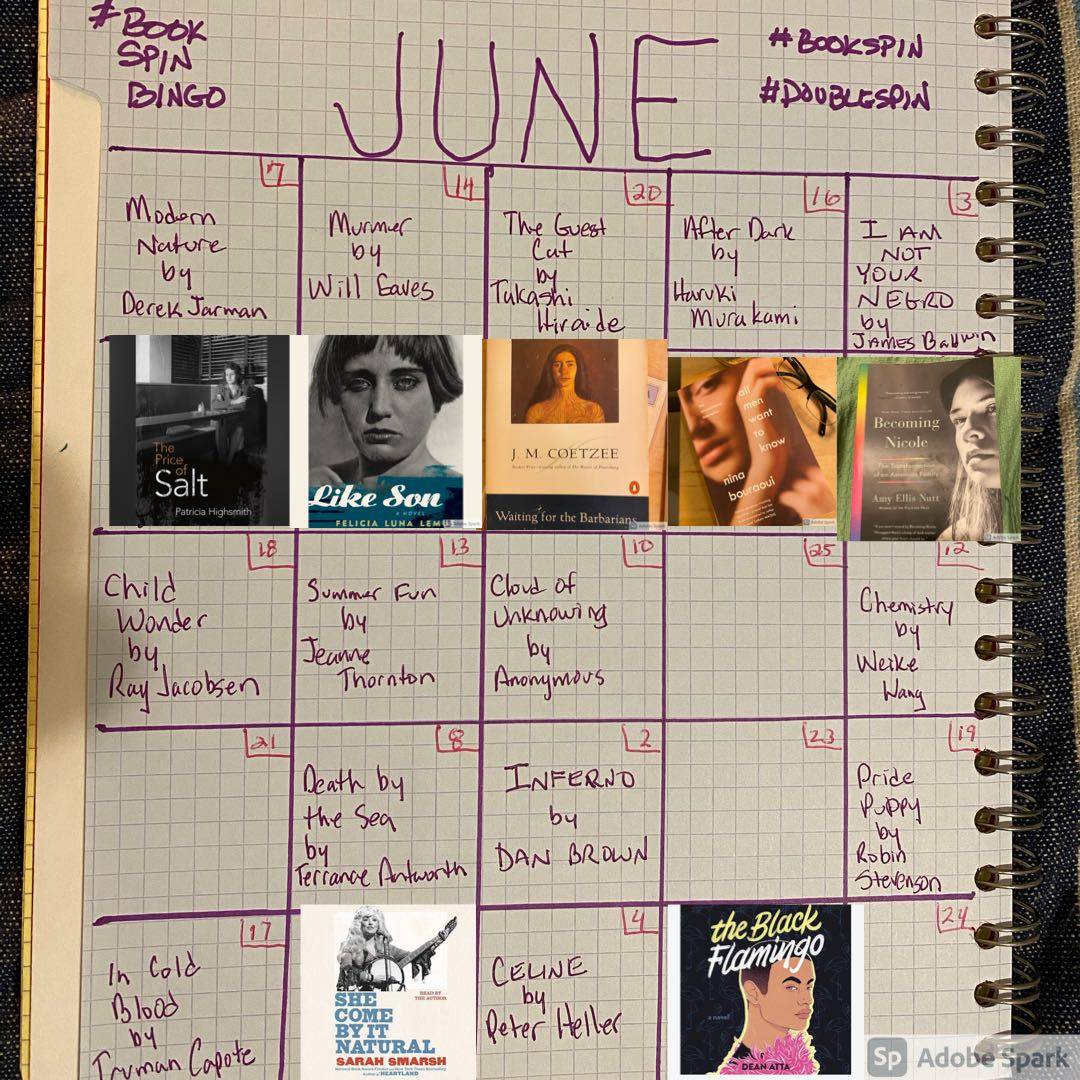 #BOOK
SPIN
BINGO
JUNE
#BOOKSPIN
#DOUBLESPIN
7
Modern
Nature
by
Derek Jarman
14
Murmer
by
Will Eaves
20
The Guest
Cat
by
Takashi
Hiraide
16
After Dark
by
Haruki
Murakami
3
I AM
NOT
YOUR
NEGRO
by
JAMES Baldwin
The
Price
of
Salt
Patricia Highsmith
Like Son
A NOVEL
FELICIA LUNA LEMU
J. M. COETZEE
Waiting for the Barbarians
all
men
want
to
know
nina
bouraoui
Becoming
Nicole
The Transformation
of an American Family
Amy Ellis Nutt
18
Child
Wonder
by
Ray Jacobsen
13
Summer Fun
by
Jeanne
Thornton
10
Cloud of
Unknowing
by
Anonymous
25
12
Chemistry
by
Weike
Wang
21
8
Death by
the Sea
by
Terrance Antworth
2
INFERNO
by
DAN BROWN
23
19
Pride
Puppy
by
Robin
Stevenson
17
In Cold
Blood
by
Truman Capote
READ BY
THE AUTHOR
SHE
COME
BY IT
NATURAL
SARAH SMARSH
National Book Award Finalist and New York Times Bestselling
Author of HEARTLAND
4
CELINE
by
Peter Heller
the Black
Flamingo
a novel
DEAN ATTA
24
Sp Adobe Spark